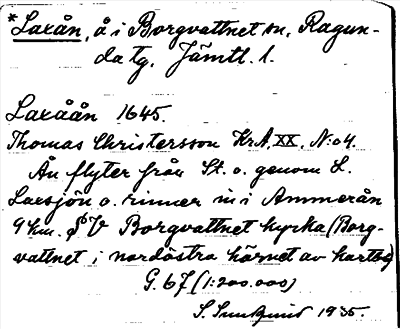 *Laxån, å i Borgvattnet sn, Ragun-
da tg, Jämtl. l.
Laxåån 1645.
Thomas Christersson KrA, XX, N:o 4.
Ån flyter från St. o. genom L.
Laxsjön o. rinner in i Ammerån
9 km. V Borgvattnet kyrka (Borg-
vattnet, i nordöstra hörnet av kartbl.)
G. 67 (1:200.000)
S. Sundquist 1935.